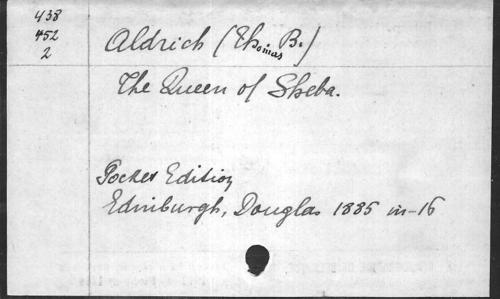 438
452
2
Aldrich (Thomas B.)
The Queen of Sheba.
Pocket Edition
Edinburgh, Douglas 1885 in-16